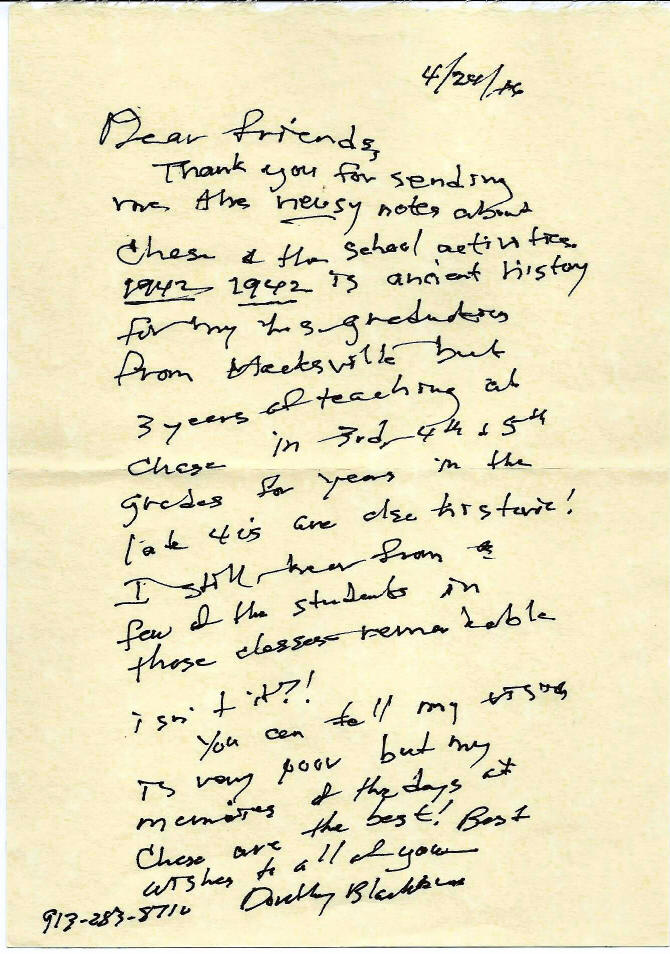 4/24/16
Dear friends,
Thank you for sending
me the newsy notes about
Chase & the school activities.
1942 1942 is ancient history
for my h.s. graduation
from Macksville but
3 years of teaching at
Chase in 3rd, 4th & 5th
grades for years in the
late 40s are also historic!
I still hear from a
few of the students in
those classes remarkable
isn't it?!
You can tell my vision
is very poor but my
memories of the days at
Chase are the best! Best
wishes to all of you
Dorothy
913-283-8710